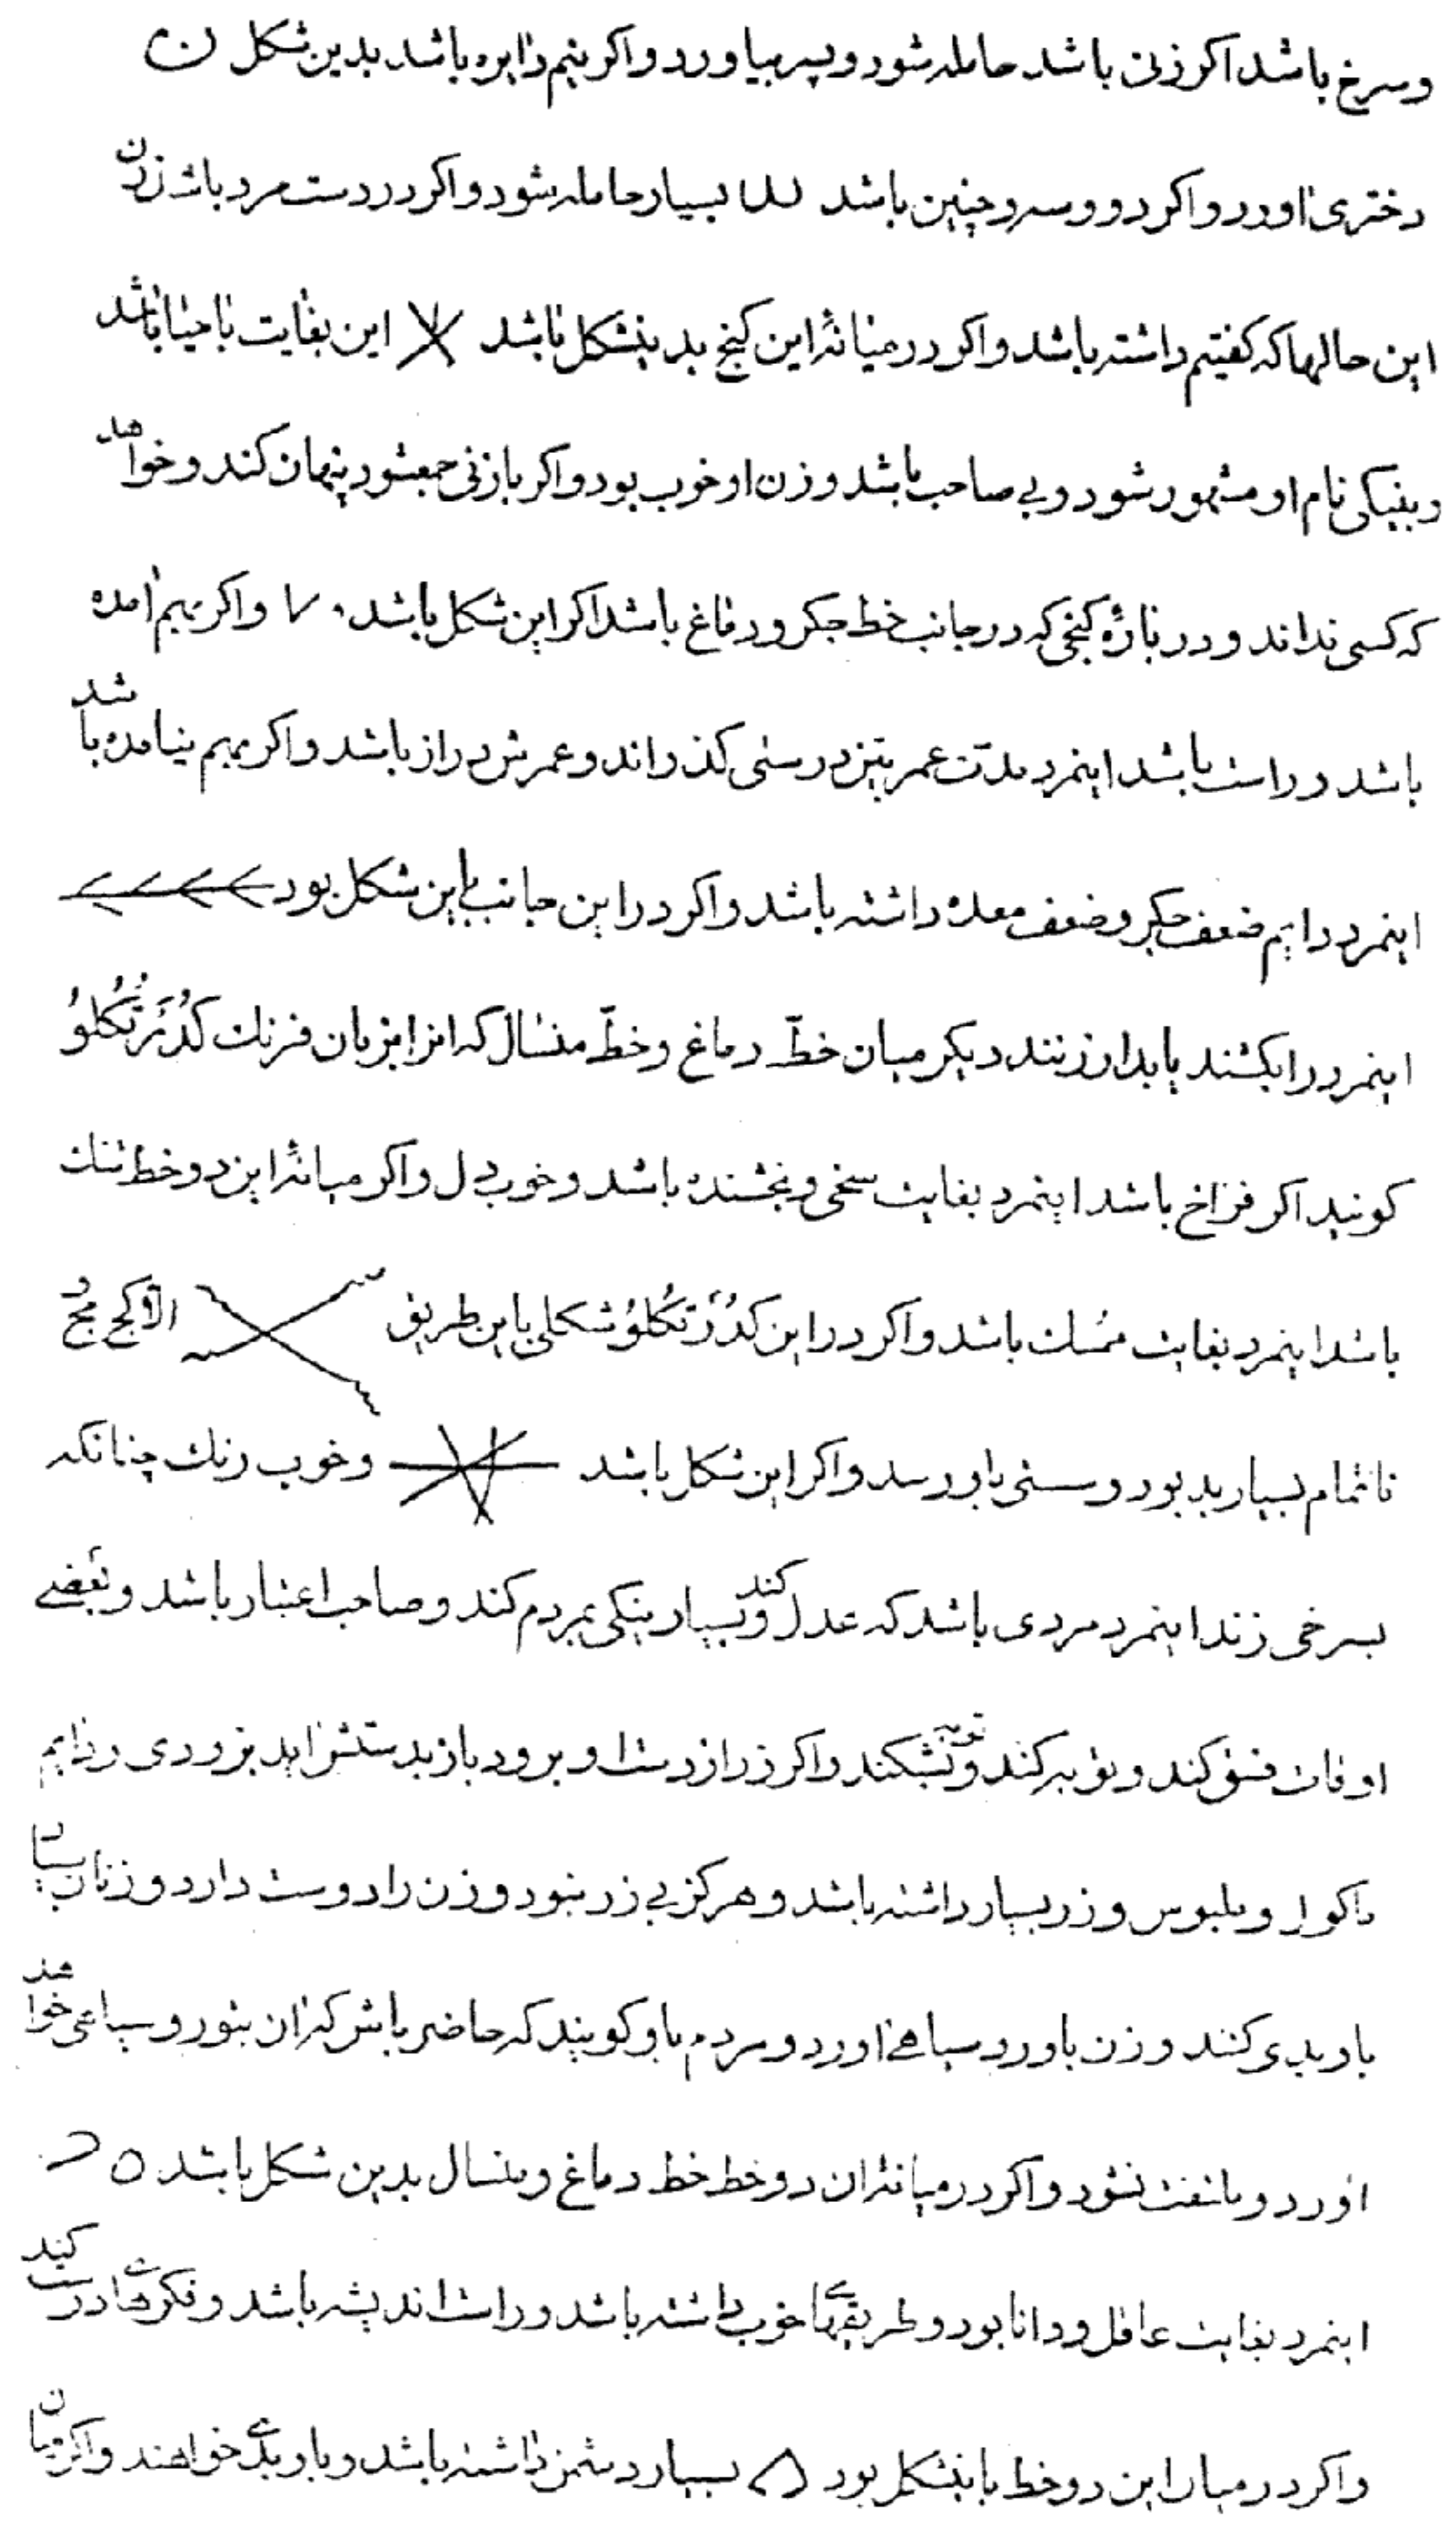 وسرخ باشد اکر زنی باشد حامله شود و پسر بیاورد واکر نیم دایره باشد بدین شکل
دختری اورد واکر دو وسه وچنین باشد بسیار حامله شود واکر در دست مرد باشد زن
این حالها که کفیتم داشته باشد واکر در میانهٔ این کنج بدینشکل باشد این بغایت باحیا باشد
وبنیکی نام او مشهور شود وبی صاحب باشد وزن او خوب بود واکر بازنی جمعشود پنهان کند وخواهد
که کسی نداند ودر بارهٔ کنجی که در جانب خط جکر ودماغ باشد اکر این شکل باشد واکر بهم امده
باشد وراست باشد اینمرد مدت عمر بتیزدرستی کذراند وعمرش دراز باشد واکر بهم نیامده باشد
اینمرد دایم ضعف جکر وضعف معده داشته باشد واکر در این جانب این شکل بود
اینمرد را بکشند یا بدار زنند دیکر میان خطّ دماغ وخطّ منسال که انرا بزبان فرنك
کویند اکر فراخ باشد اینمرد بغایت سخی وبخشنده باشد وخوب دل واکر میانهٔ این دو خط تنك
باشد اینمرد بغایت ممسك باشد واکر در این شکلی باین طریق الا کج مج
ناتمام بسیار بد بود وسستی باو رسد واکر این شکل باشد وخوب رنك چنانکه
بسرخی زند اینمرد مردی باشد که عدل کند وبسیار نیکی بمردم کند وصاحب اعتبار باشد وبعضے
اوقات فسق کند وتوبه کند وتوبه بشکند واکر زر از دست او برود باز بدستش اید بزودی ودایم
ماکول وملبوس وزر بسیار داشته باشد وهرکز بی زر نبود وزن را دوست دارد وزنان بسیار
باو بدی کنند وزن باو رو سیاهی اورد ومردم باو کویند که حاضر باش که ان بتو رو سیاهی خواهد
اورد وملتفت نشود واکر در میانهٔ ان دو خط خط دماغ ومنسال بدین شکل باشد
اینمرد بغایت عاقل ودانا بود وطریقهاے خوب داشته باشد وراست اندیشه باشد وفکرهاے درست کند
واکر در میان این دو خط باینشکل بود بسیار دشمن داشته باشد وباو بدے خواهند واکر میان